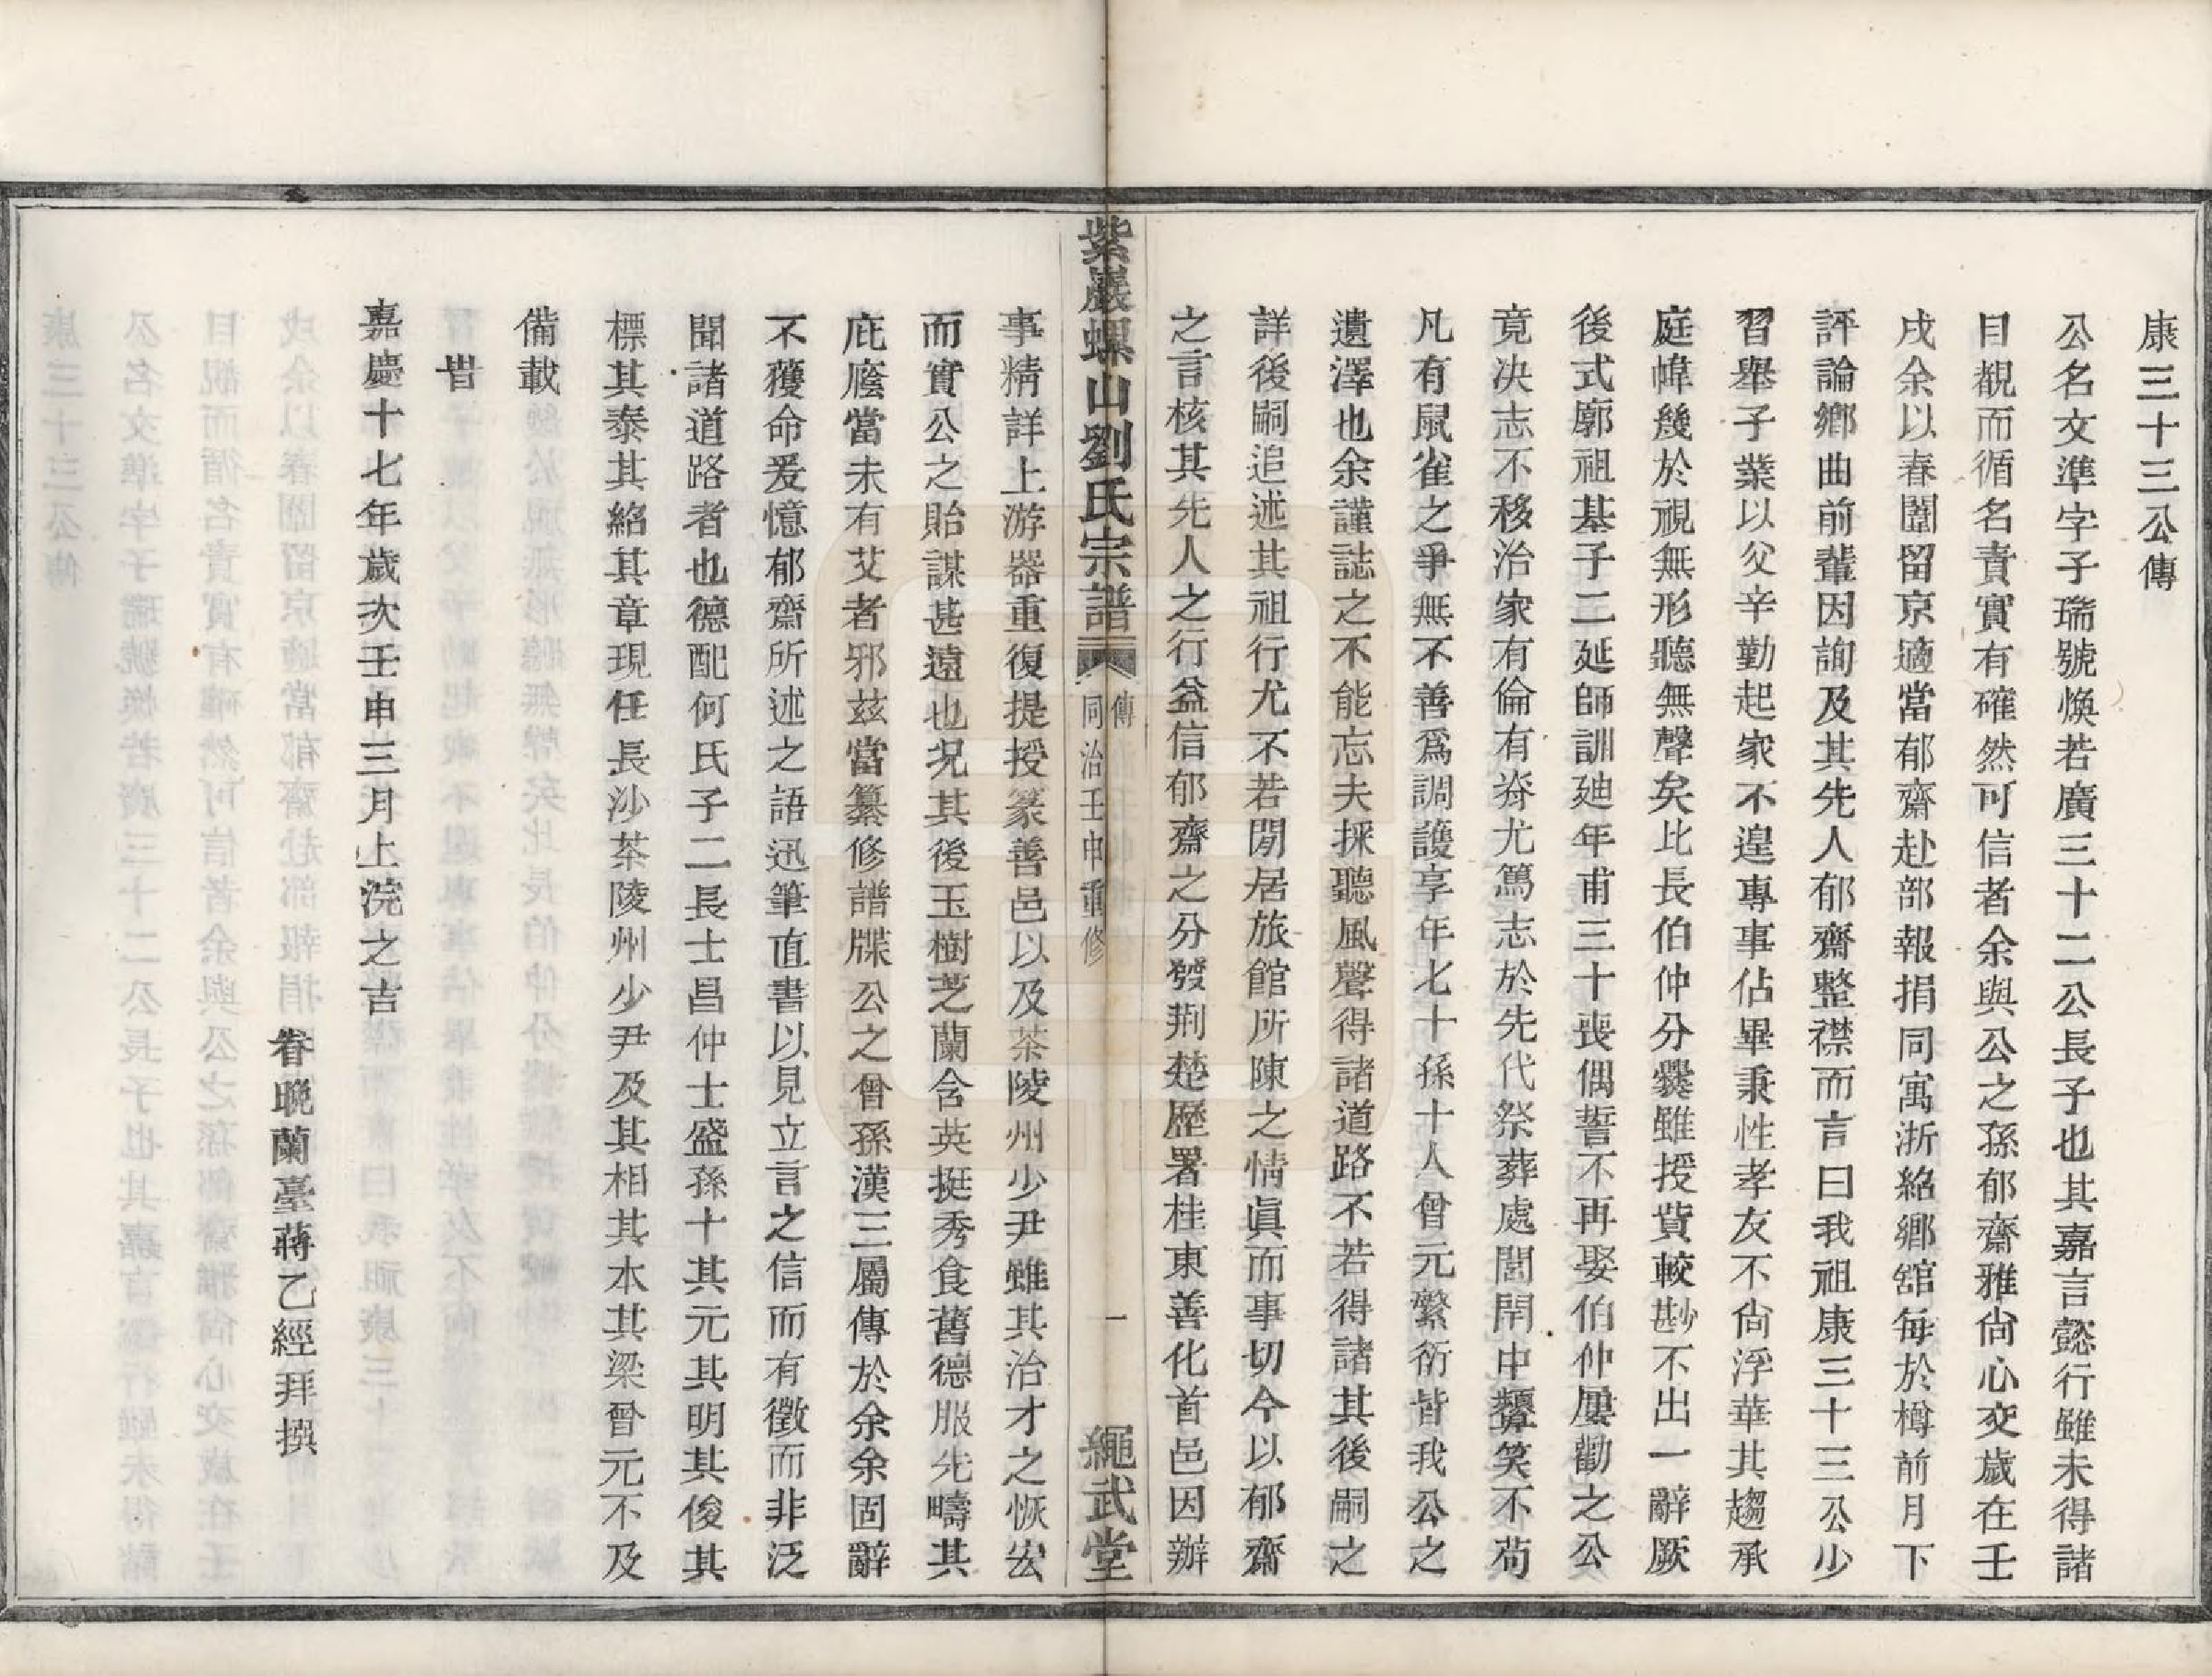 康三十三公傳
公名文準字子瑞號煥若廣三十二公長子也其嘉言懿行雖未得諸
目覩而循名責實有確然可信者余與公之孫郁齋雅尙心交歲在壬
戌余以春闈留京適當郁齋赴部報捐同寓浙紹鄉舘每於樽前月下
評論鄉曲前輩因詢及其先人郁齋整襟而言曰我祖康三十三公少
習舉子業以父辛勤起家不遑專事佔畢秉性孝友不尙浮華其趨承
庭幃幾於視無形聽無聲矣比長伯仲分爨雖授貲較尠不出一辭厥
後式廓祖基子二延師訓廸年甫三十喪偶誓不再娶伯仲屢勸之公
竟决志不移治家有倫有脊尤篤志於先代祭葬處閭閈中顰笑不苟
凡有鼠雀之爭無不善爲調護享年七十孫十人曾元繁衍皆我公之
遺澤也余謹誌之不能忘夫採聽風聲得諸道路不若得諸其後嗣之
詳後嗣追述其祖行尤不若閒居旅館所陳之情眞而事切今以郁齋
之言核其先人之行益信郁齋之分發荆楚歷署桂東善化首邑因辦
紫巖螺山劉氏宗譜 傳 同治壬申重修 一 繩武堂
事精詳上游器重復提授篆善邑以及茶陵州少尹雖其治才之恢宏
而實公之貽謀甚遠也况其後玉樹芝蘭含英挺秀食舊德服先疇其
庇廕當未有艾者邪玆當纂修譜牒公之曾孫漢三屬傳於余余固辭
不獲命爰憶郁齋所述之語迅筆直書以見立言之信而有徵而非泛
聞諸道路者也德配何氏子二長士昌仲士盛孫十其元其明其俊其
標其泰其紹其章現任長沙茶陵州少尹及其相其本其梁曾元不及
備載
旹
嘉慶十七年歲次壬申三月上浣之吉
眷晚蘭臺蔣乙經拜撰